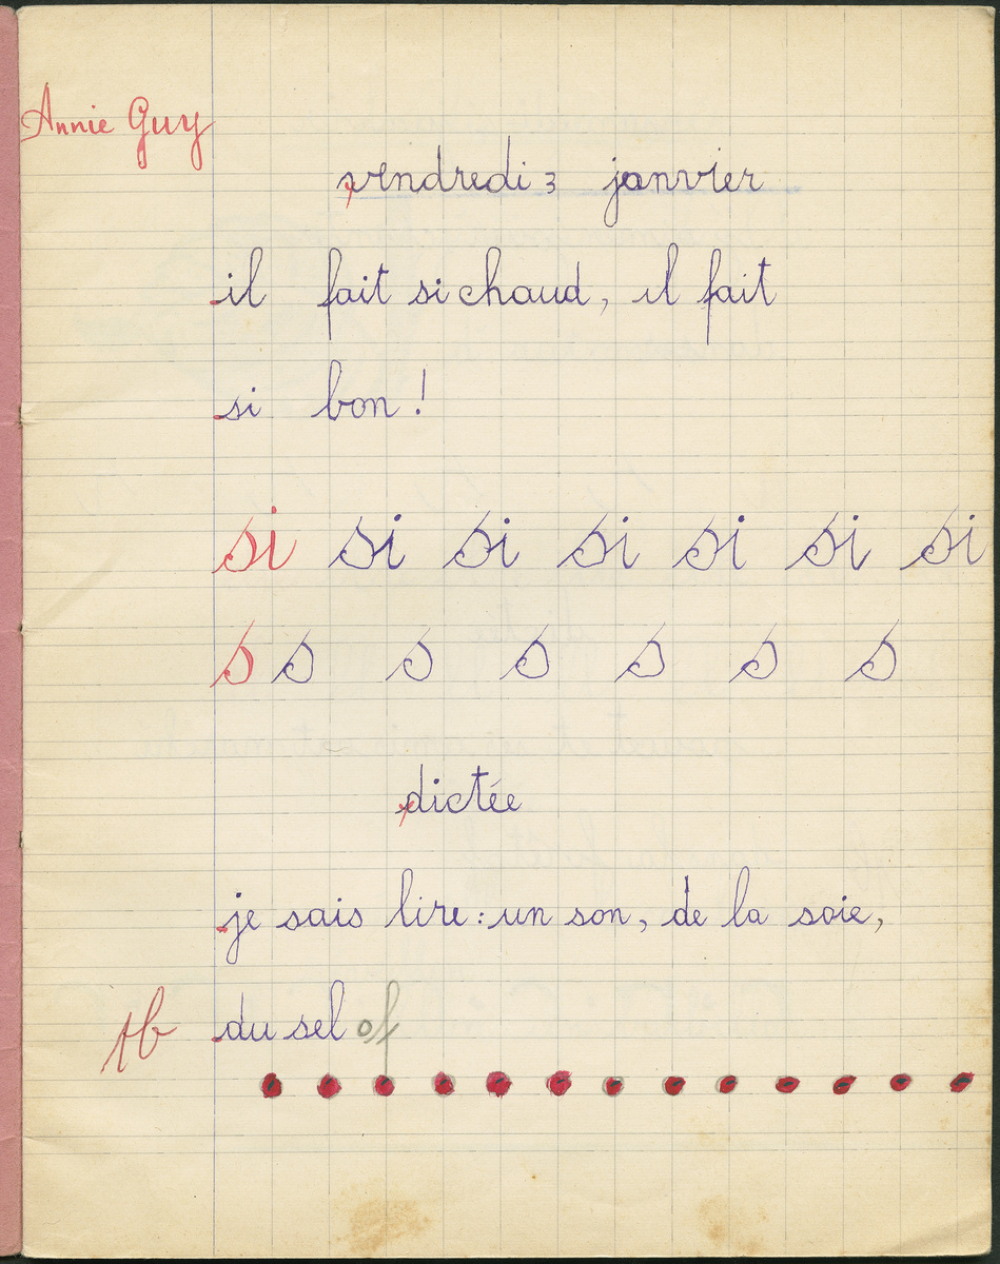 Annie Guy
vendredi 3 janvier
il fait si chaud, il fait
si bon !
si si si si si si si
s s s s s s s
dictée
je sais lire : un son, de la soie,
du sel of
tb